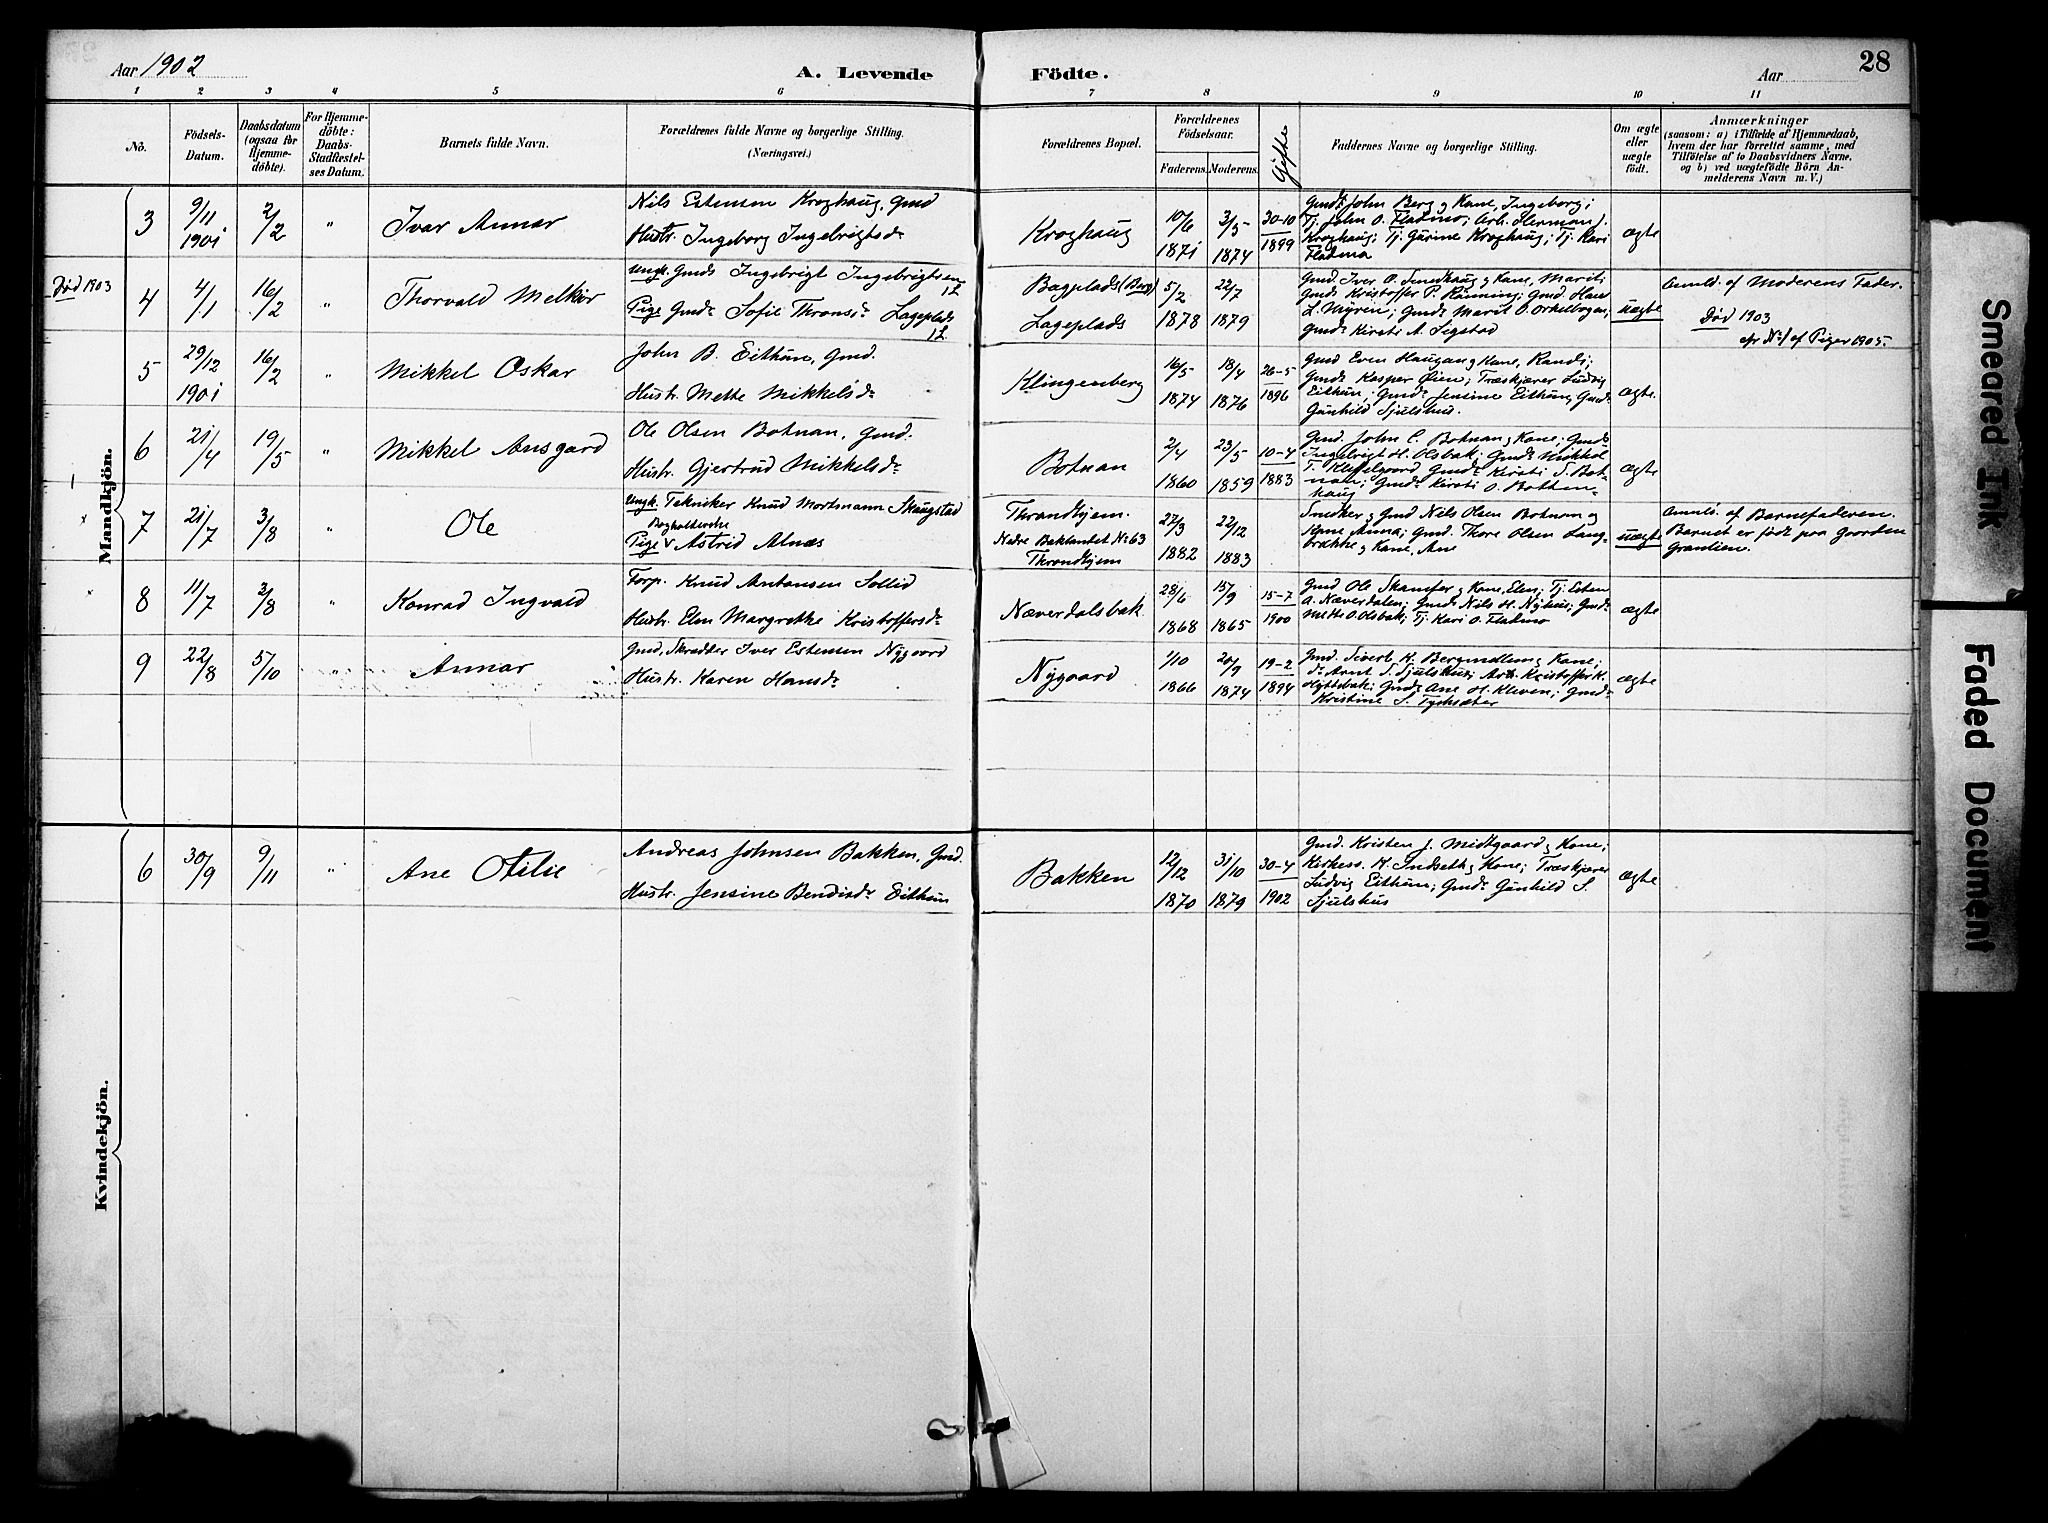 Aar 1902
A. Levende
Födte.
Aar
28
1 2 3 4 5 6 7 8 9 10 11
Nö.
Födsels-
Datum.
Daabsdatum
(ogsaa för
Hjemme-
döbte).
For Hjemme-
döbte:
Daabs-
Stadfæstel-
ses Datum.
Barnets fulde Navn.
Forældrenes fulde Navne og borgerlige Stilling.
(Næringsvei.)
Forældrenes Bopæl.
Forældrenes
Födselsaar.
Faderens. Moderens.
Gifte
Faddernes Navne og borgerlige Stilling.
Om ægte
eller
uægte
födt.
Anmærkninger
(saasom: a) i Tilfælde af Hjemmedaab,
hvem der har forrettet samme, med
Tilföielse af to Daabsvidners Navne.
og b) ved uægtefödte Börn An-
melderens Navn m. V.)
Mandkjön.
3
9/11
1901
2/2
"
Ivar Annar
Nils Estensen Kroghaug, Gmd
Hustr. Ingeborg Ingebrigtsdr
Kroghaug
10/6
1871
3/5
1874
30-10
1899
Gmd. John Berg og Kone, Ingeborg;
Tj. John O. Fladmo; Arb. Herman J.
Kroghaug; Tj. Gurine Kroghaug; Tj. Kari
Fladmo
ægte
Död 1903
4
4/1
16/2
"
Thorvald Melkior
Ungk. Gmds Ingebrigt Ingebrigtsen
1ł
Pige Gmdr Sofie Thronsdr Lageplads
1ł
Bagplads (Berg)
Lageplads
5/2
1878
22/7
1879
Gmd Iver O. Smedhaug og Kone, Marit;
Gmds Kristoffer P. Rönning; Gmd. Hans
L. Myren; Gmdr Marit O. Orkelbogen;
Gmdr Kirsti A. Segstad
uægte
Anmld. af Moderens Fader.
Död 1903
cfr No 1 af Piger 1905.
5
29/12
1901
16/2
"
Mikkel Oskar
John B. Eithun, Gmd.
Hustr. Mette Mikkelsdr
Klingenberg
16/5
1874
18/4
1876
26-5
1896
Gmd Even Haugan og Kone, Randi;
Gmds Kasper Öien; Træskjærer Ludvig
Eithun; Gmdr Jensine Eithun; Gmdr
Gunhild Sjulshus.
ægte.
6
21/4
19/5
"
Mikkel Ansgard
Ole Olsen Botnan, Gmd.
Hustr. Gjertrud Mikkelsdr
Botnan
2/4
1860
23/5
1859
10-4
1883
Gmd. John C. Botnan og Kone; Gmds
Ingebrigt H. Olsbak; Gmds Mikkel
T. Gmdr Kirsti S. Bot-
nan; Gmdr Kirsti O. Botten-
haug
ægte
7
21/7
3/8
"
Ole
Ungk. Tekniker Knud Mortmann Skaugstad
Bogholderske
Pige v Astrid Alnæs
Throndhjem.
Nedre Baklandet No 63
Throndhjem
27/3
1882
22/12
1883
Snedker og Gmd Nils Olsen Botnan og
Kone Anna; Gmd. Thore Olsen Lang-
brække og Kone, Ane
uægte
Anmld. af Barnefaderen.
Barnet er födt paa Gaarden
Granlien.
8
11/7
3/8
"
Konrad Ingvald
Forp. Knud Antonsen Sollid
Hustr. Elen Margrethe Kristoffersdr
Næverdalsbak
28/6
1868
15/9
1865
15-7
1900
Gmd Ole Skamfer og Kone, Elen; Tj. Esten
A. Næverdalen; Gmds Nils H. Nyhus; Gmdr
Mette O. Olsbak; Tj. Kari O. Fladmo
ægte
9
22/8
5/10
"
Annar
Gmd, Skrædder Iver Estensen Nygaard
Hustr. Karen Hansdr
Nygaard
1/10
1866
20/9
1874
19-2
1894
Gmd. Sivert H. Bergmellem og Kone;
Ds Arnt S. Sjulshus; Arb. Kristoffer K.
Hyttebak; Gmdr Ane H. Kleven; Gmdr
Kristine S.
ægte
Kvindekjön.
6
30/9
9/11
"
Ane Otilie
Andreas Johnsen Bakken, Gmd.
Hustr. Jensine Bendiksdr Eithun
Bakken
12/12
1870
31/10
1879
30-4
1902
Gmd. Kristen J. Midtgaard og Kone;
Kirkess. H. Indseth og Kone; Træskjærer
Ludvig Eithun; Gmdr Gunhild S.
Sjulshus
ægte
Smeared Ink
Faded Document